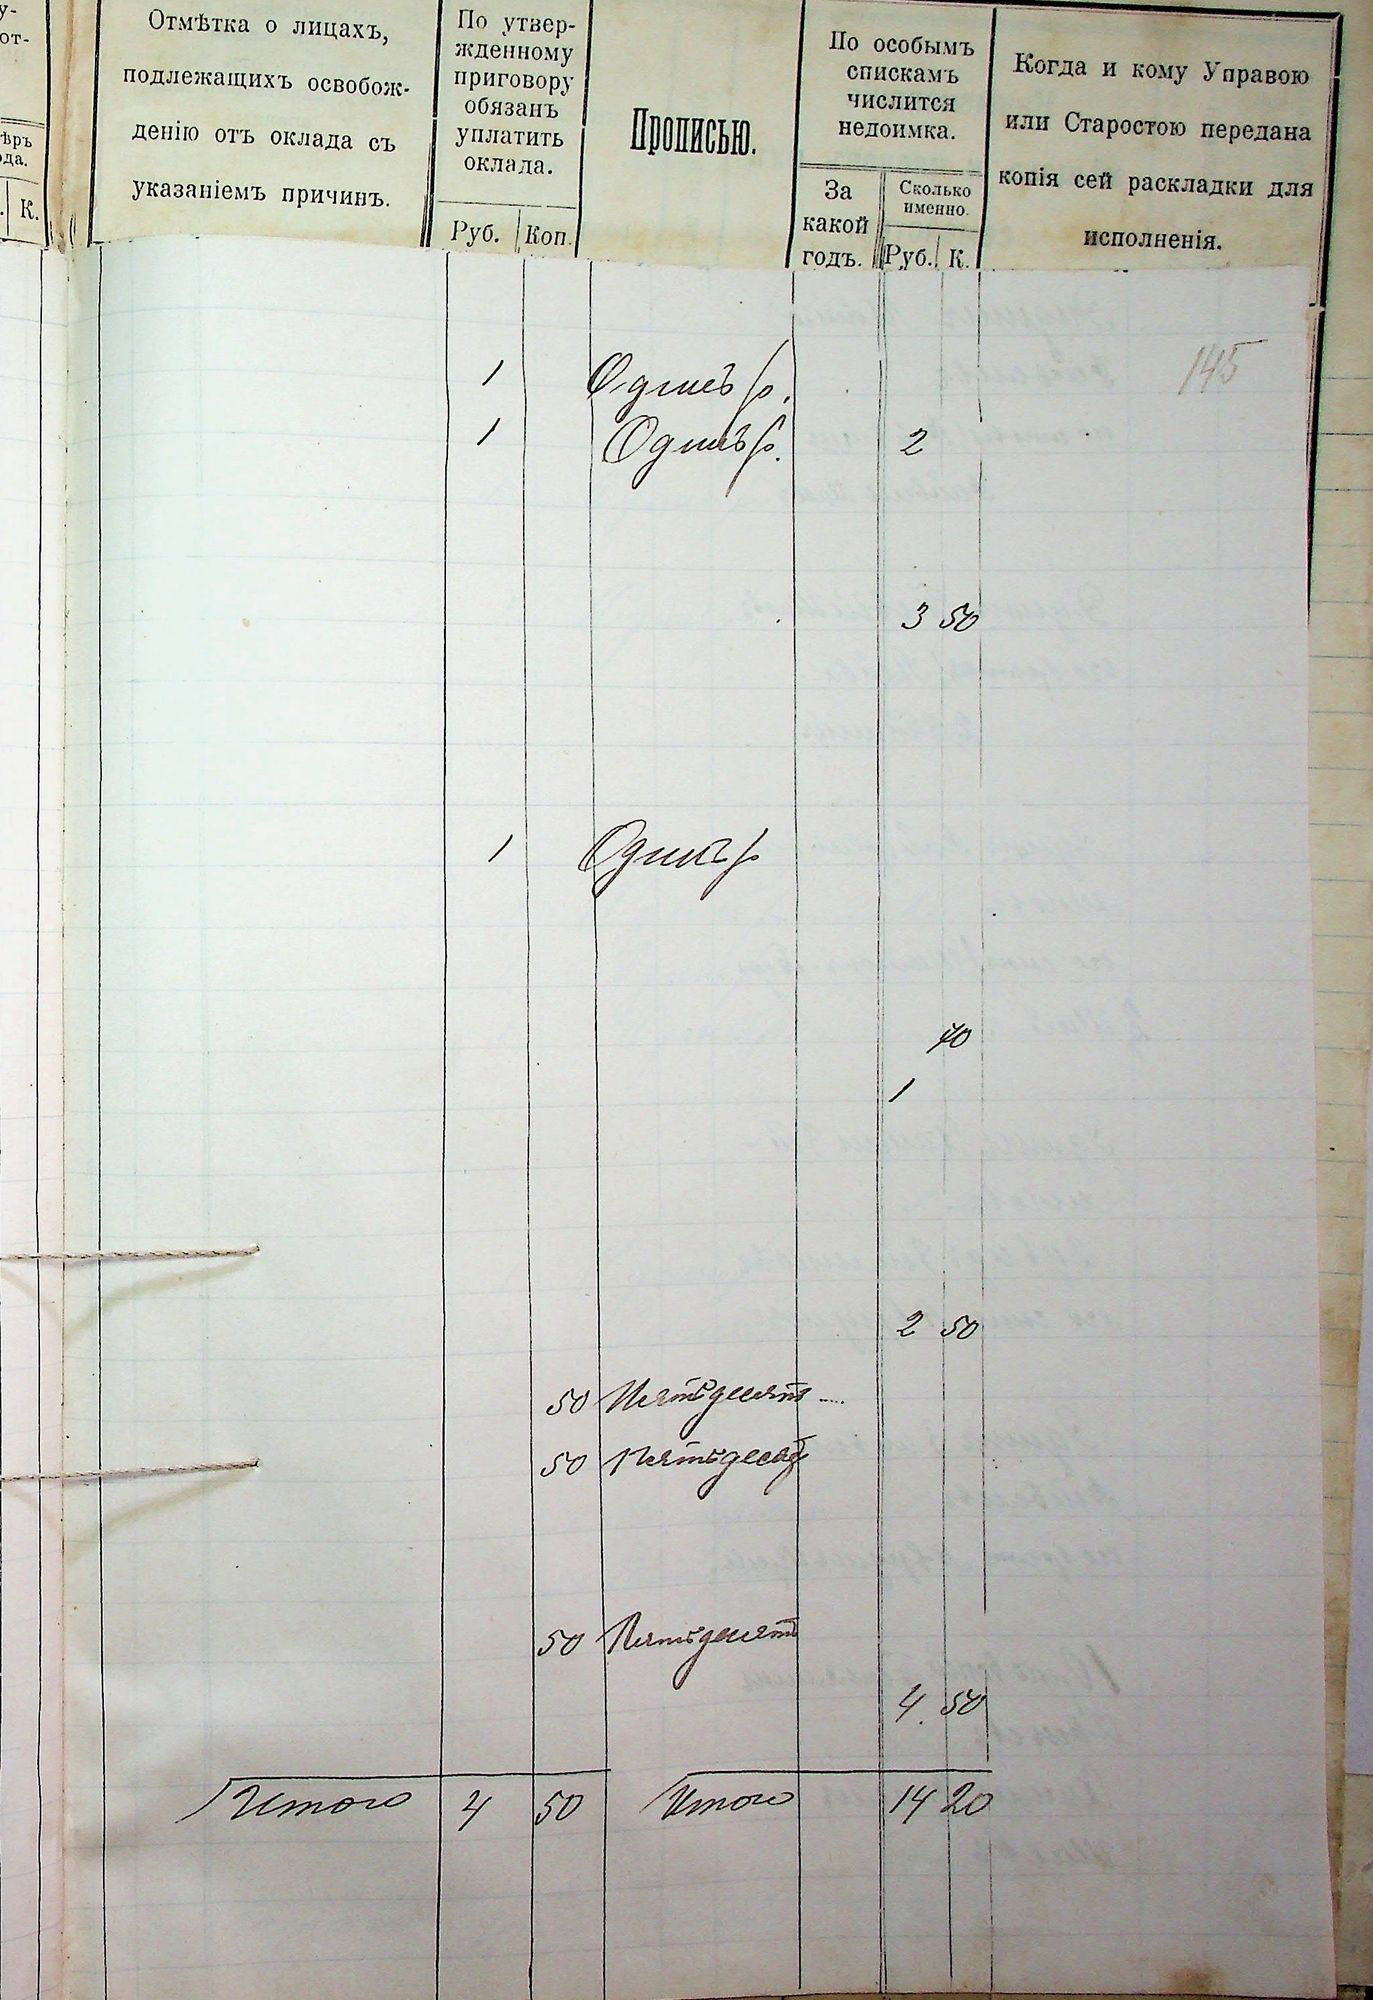 у-
от-
ѣръ
ода.
К.
Отмѣтка о лицахъ,
подлежащихъ освобож-
денію отъ оклада съ
указаніемъ причинъ.
По утвер-
жденному
приговору
обязанъ
уплатить
оклада.
Руб. Коп.
Прописью.
По особымъ
спискамъ
числится
недоимка.
За
какой
годъ.
Сколько
именно.
Руб. К.
Когда и кому Управою
или Старостою передана
копія сей раскладки для
исполненія.
145
1 Одинъ р.
1 Одинъ р. 2
3 50
1 Одинъ р
70
1
2 50
50 Пятьдесятъ
50 Пятьдесят
50 Пятьдесятъ
4 50
Итого 4 50 Итого 14 20